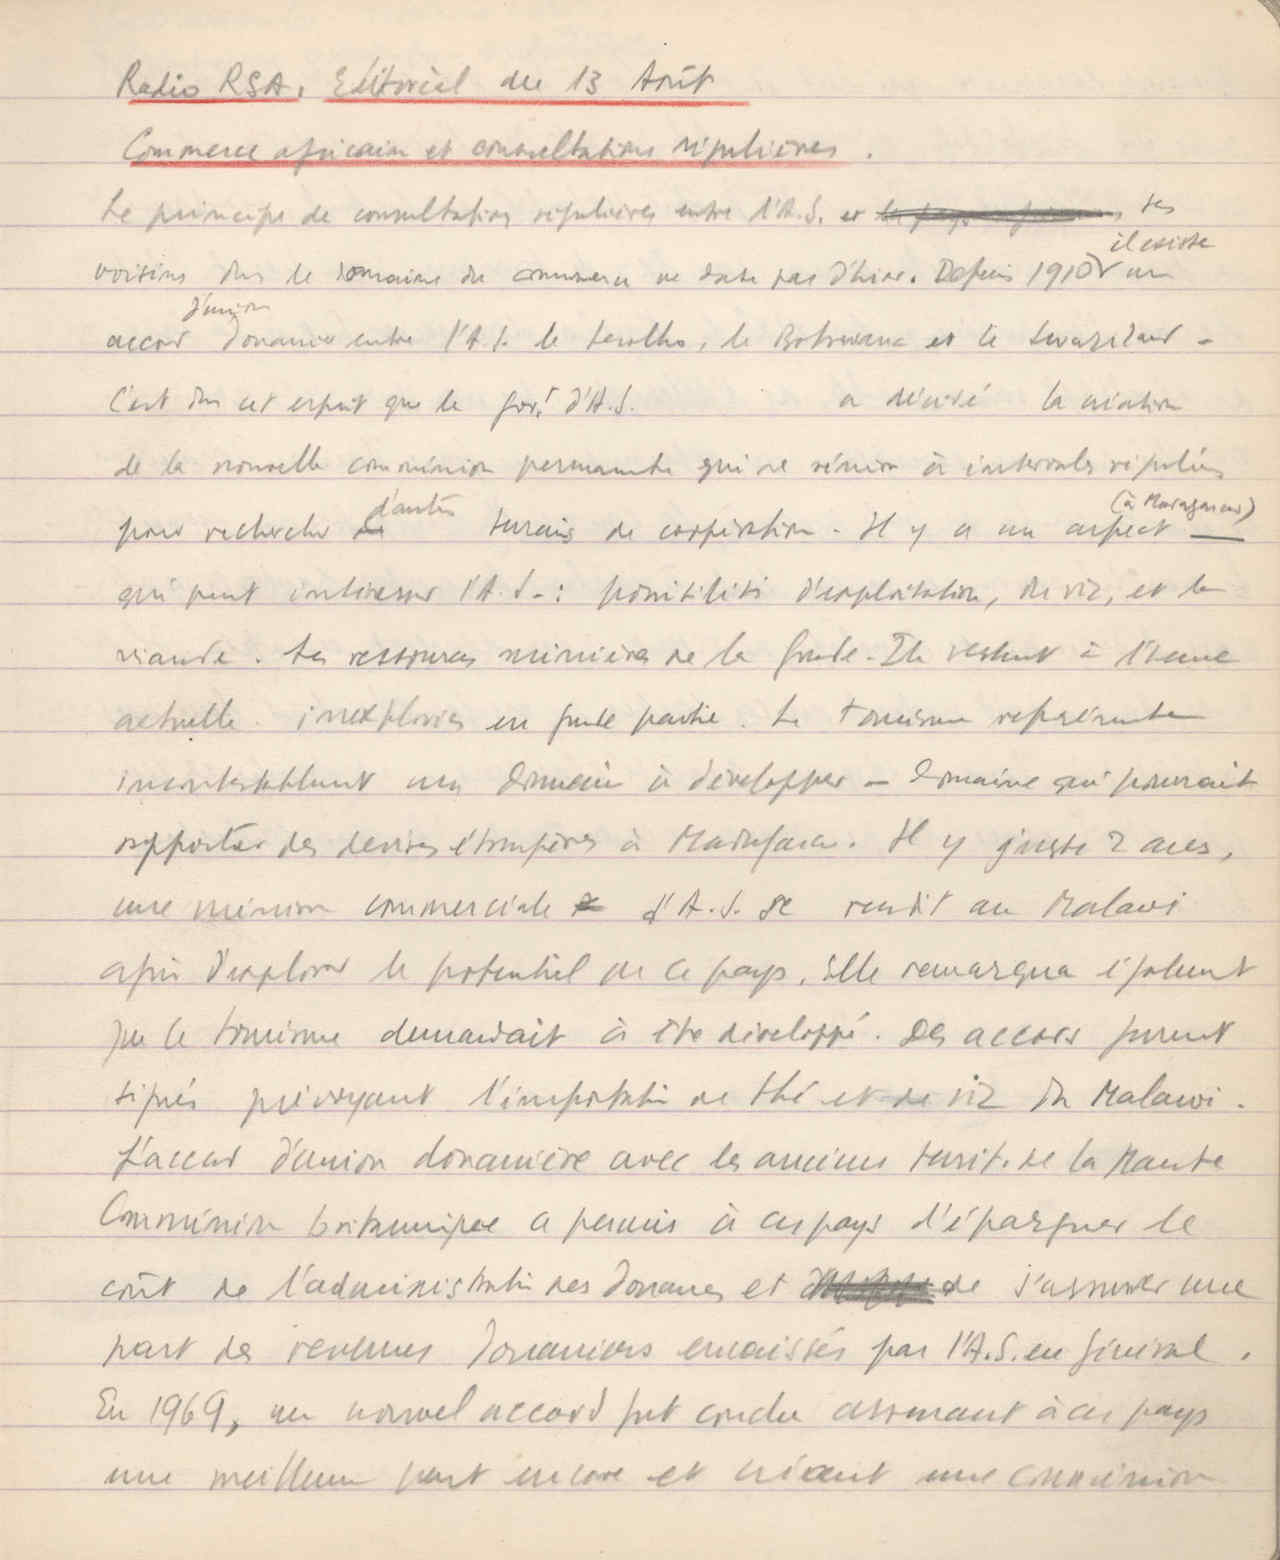 Radio RSA. Editorial du 13 Août
Commerce africain et consultations régulières.
Le principe de consultations régulières entre l'A.S. et ses
il existe
voisins dans le domaine du commerce ne date pas d'hier. Depuis 1910 un
d'union
accord douanier entre l'A.S. le Lesotho, le Botswana et le Swaziland -
C'est dans cet esprit que le gov.t d'A.S. a décidé la création
de la nouvelle commission permanente qui se réunira à intervales réguliers
d'autres (à Madagascar)
pour rechercher terrains de coopération. Il y a un aspect
qui peut intéresser l'A.S. : possibilités d'exploitation, du riz, et la
viande. Les ressources minières de la Grande Ile restent à l'heure
actuelle inexplorées en grande partie. Le tourisme représente
incontestablement un domaine à développer - domaine qui pourrait
apporter des devises étrangères à Madagascar. Il y juste 2 ans,
une mission commerciale d'A.S. se rendit au Malawi
afin d'explorer le potentiel de ce pays. Elle remarqua également
que le tourisme demandait à être développé. Des accords furent
signés prévoyant l'importation de thé et de riz du Malawi.
L'accord d'union douanière avec les anciens territ. de la Haute
Commission britannique a permis à ces pays d'épargner le
coût de l'administration des douanes et de s'assurer une
part des revenus douaniers encaissés par l'A.S. en général.
En 1969, un nouvel accord fut conclu assurant à ces pays
une meilleure part encore et créant une commission